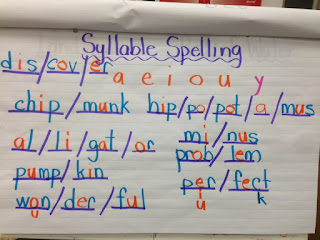 Syllable Spelling
dis/cov/er
a e i o u y
chip/munk hip/po/pot/a/mus
al/li/gat/or mi/nus
prob/lem
pump/kin per/fect
i k
u
won/der/ful
u